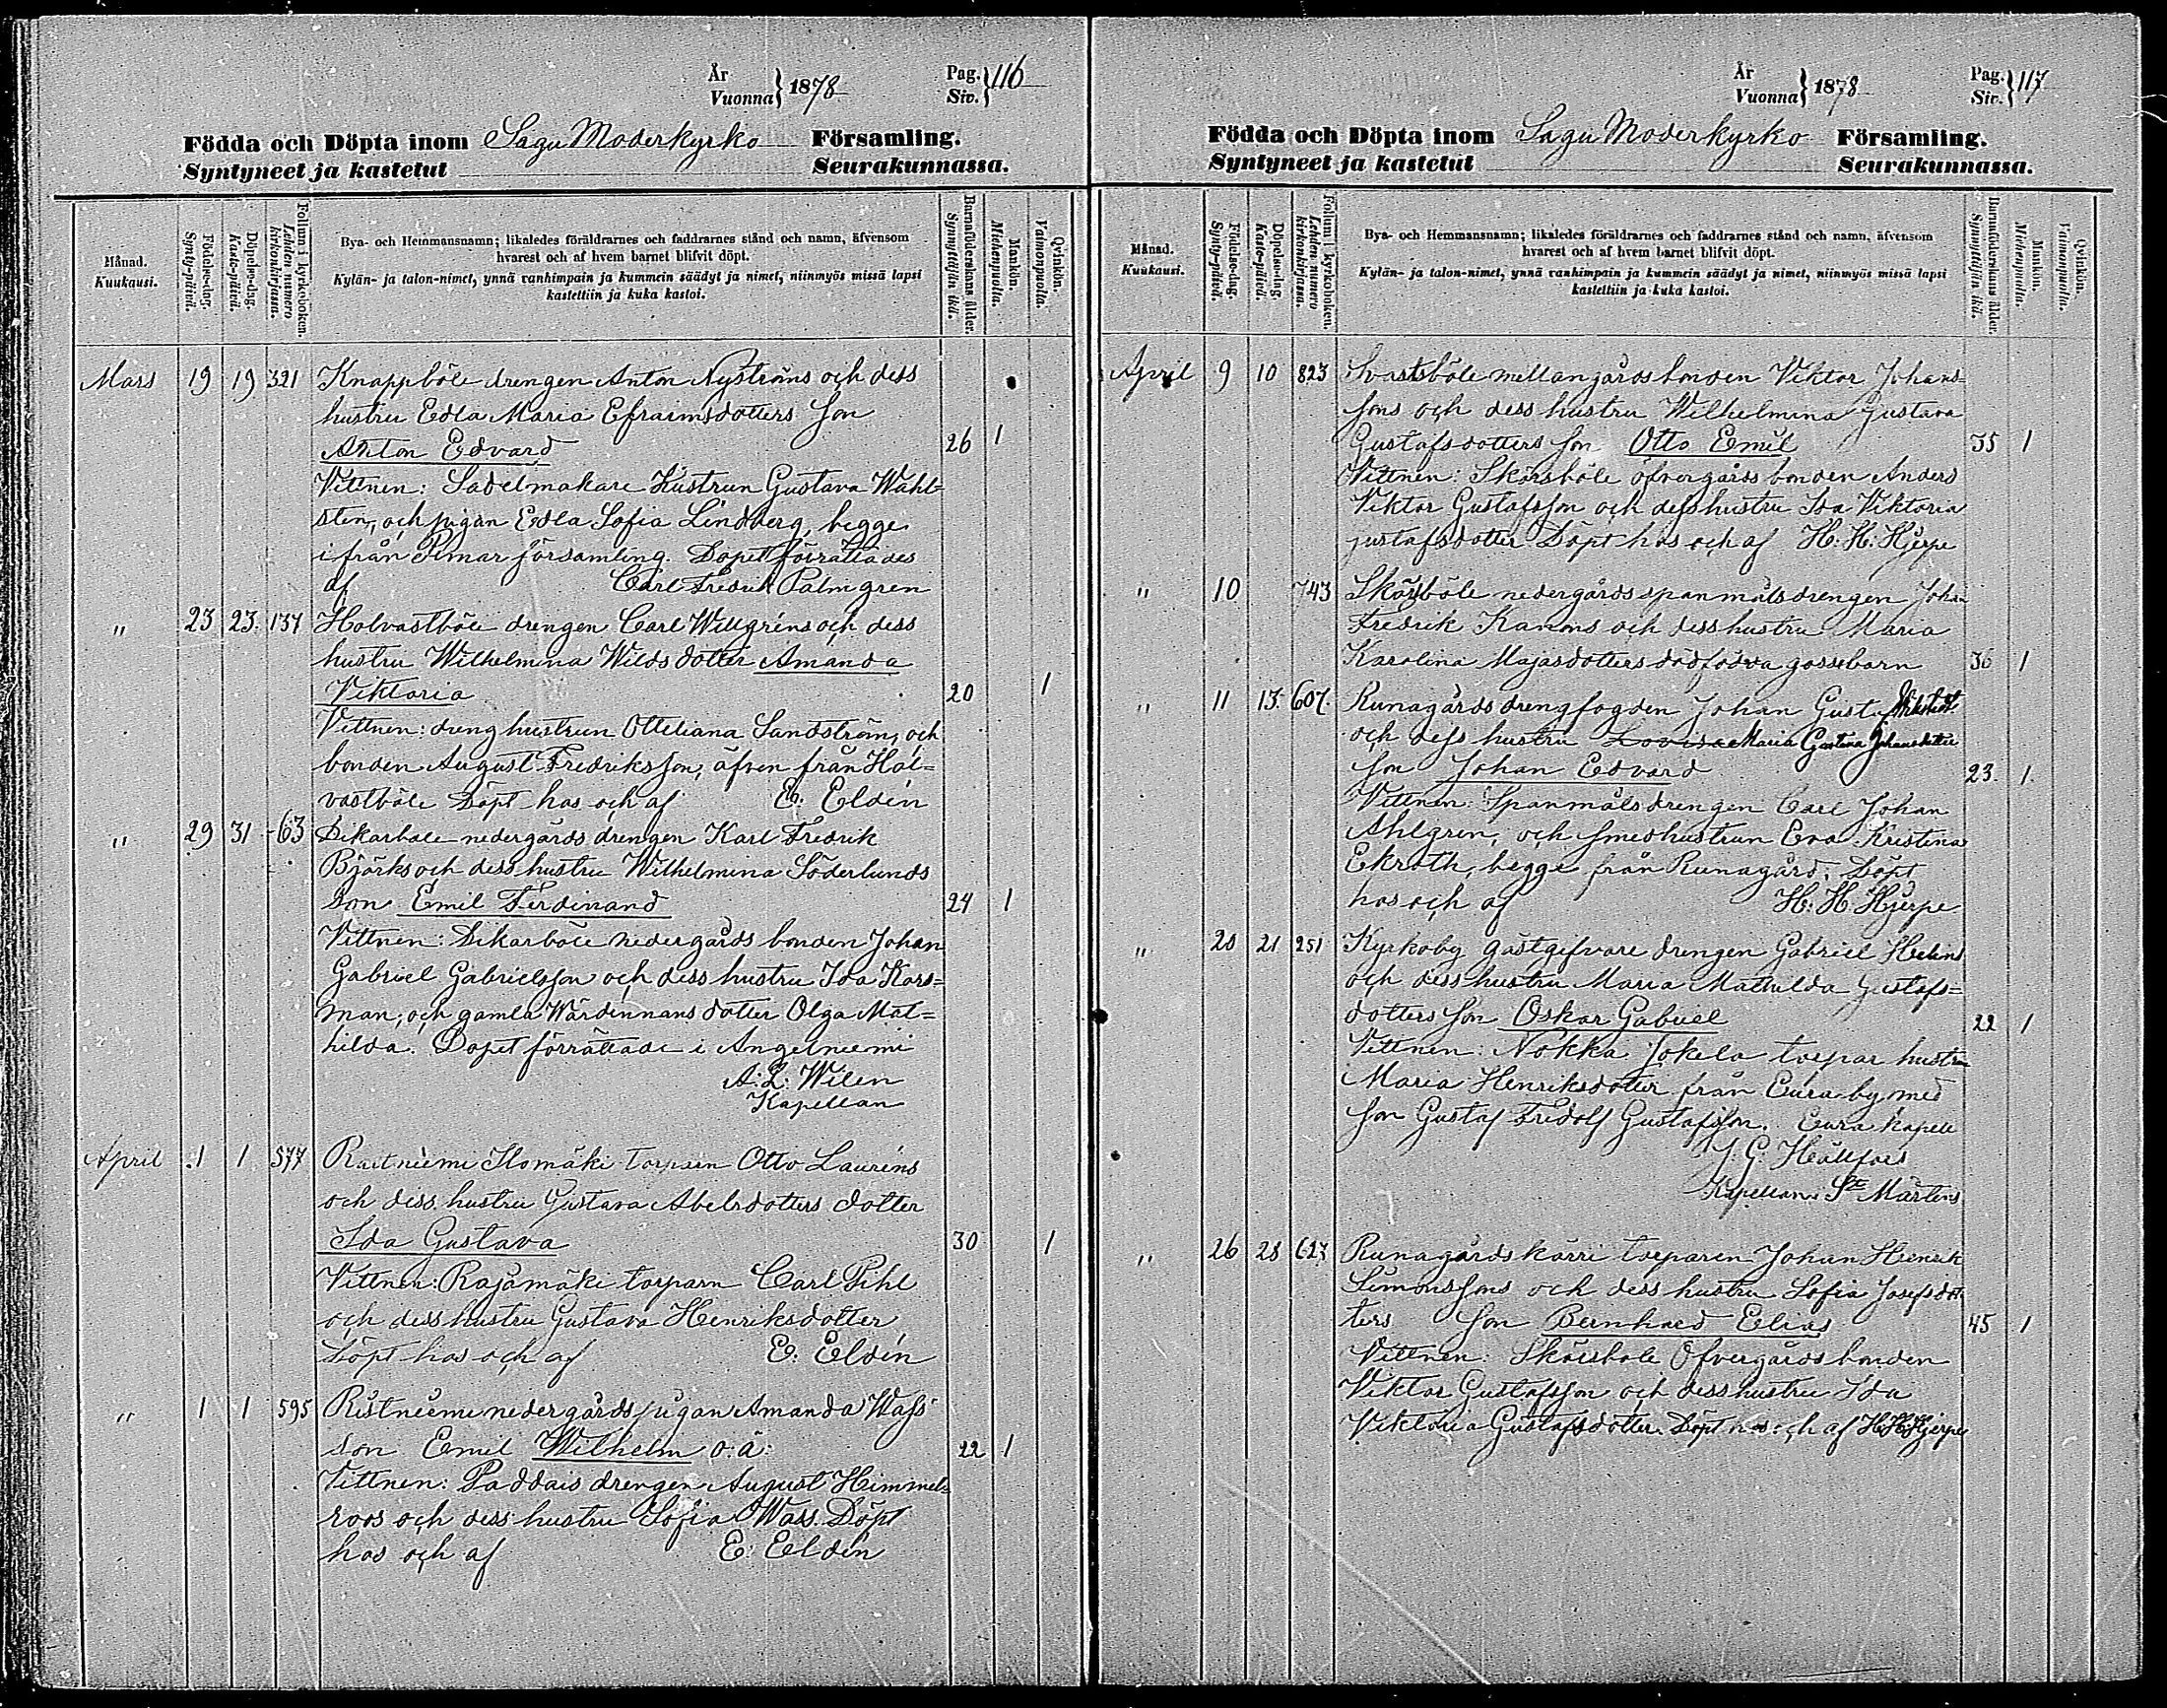 År
Vuonna } 1878
Pag.
Siv. } 116
Födda och Döpta inom Sagu Moderkyrko Församling.
Syntyneet ja kastetut Seurakunnassa.
Månad.
Kuukausi.
Födelse-dag.
Synty-päivä.
Döpelse-dag.
Kaste-päivä.
Folium i kyrkoboken.
Lehden numero kirkonkirjassa.
Bya- och Hemmansnamn; likaledes föräldrarnes och faddrarnes stånd och namn, äfvensom
hvarest och af hvem barnet blifvit döpt.
Kylän- ja talon-nimet, ynnä vanhimpain ja kummein säädyt ja nimet, niinmyös missä lapsi
kastettiin ja kuka kastoi.
Barnaföderskans ålder.
Synnyttäjän ikä.
Mankön.
Miehenpuolia.
Qvinkön.
Vaimonpuolia.
Mars 19 19 321 Knappböle drengen Anton Nyströms och dess
hustru Edla Maria Efraimsdotters Son
Anton Edvard 26 1
Vittnen: Sadelmakare Hustrun Gustava Wahl=
sten, och pigan Edla Sofia Lindberg, begge
ifrån Pemar församling. Dopet förrättades
af Carl Fredrik Palmgren
" 23 23. 137 Holvastböle drengen Carl Willgréns och dess
hustru Wilhelmina Wilds dotter Amanda
Viktoria 20 1
Vittnen: dreng hustrun Otteliana Sandström, och
bonden August Fredriksson, äfven från Hol=
vastböle Döpt hos och af E. Eldén
" 29 31 63 Sikarböle nedergårds drengen Karl Fredrik
Björks och dess hustru Wilhelmina Söderlunds
Son Emil Ferdinand 24 1
Vittnen: Sikarböle nedergårds bonden Johan
Gabriel Gabrielsson och dess hustru Ida Kors=
man, och gamla Wärdinnans dotter Olga Mat=
hilda. Dopet förrättade i Angelniemi
A: L: Wilen
Kapellan
April 1 1 577 Raitniemi Ilomäki torparn Otto Lauréns
och dess hustru Gustava Abelsdotters dotter
Ida Gustava 30 1
Vittnen: Rajamäki torparn Carl Pihl
och dess hustru Gustava Henriksdotter
Döpt hos och af E: Eldén
" 1 1 595 Ristniemi nedergårds pigan Amanda Wass
Son Emil Wilhelm o.ä. 22 1
Vittnen: Paddais drengen August Himmel=
roos och dess hustru Sofia Wass. Döpt
hos och af E: Eldén
År
Vuonna } 1878
Pag.
Siv. } 117
Födda och Döpta inom Sagu Moderkyrko Församling.
Syntyneet ja kastetut Seurakunnassa.
Månad.
Kuukausi.
Födelse-dag.
Synty-päivä.
Döpelse-dag.
Kaste-päivä.
Folium i kyrkoboken.
Lehden numero kirkonkirjassa.
Bya- och Hemmansnamn; likaledes föräldrarnes och faddrarnes stånd och namn, äfvensom
hvarest och af hvem barnet blifvit döpt.
Kylän- ja talon-nimet, ynnä vanhimpain ja kummein säädyt ja nimet, niinmyös missä lapsi
kastettiin ja kuka kastoi.
Barnaföderskans ålder.
Synnyttäjän ikä.
Mankön.
Miehenpuolia.
Qvinkön.
Vaimonpuolia.
April 9 10 823 Svartsböle mellangårds bonden Viktor Johans=
sons och dess hustru Wilhelmina Gustava
Gustafsdotters Son Otto Emil 35 1
Vittnen: Skörsböle öfvergårds bonden Anders
Viktor Gustafsson och dess hustru Ida Viktoria
Gustafsdotter Döpt hos och af H: H: Hjerpe
" 10 743 Skörsböle nedergårds spanmålsdrengen Johan
Fredrik Kanons och dess hustru Maria
Karolina Majasdotters dödfödda gossebarn 36 1
" 11 13. 607. Runagårds drengfogden Johan Gustaf
och dess hustru Lovisa Maria Gustava Johansdotter
Son Johan Edvard 23. 1.
Vittnen: Spanmålsdrengen Carl Johan
Ahlgren, och Smedhustrun Eva Kristina
Ekroth, begge från Runagård. Döpt
hos och af H: H. Hjerpe
" 20 21 251 Kyrkoby gästgifvare drengen Gabriel Helins
och dess hustru Maria Mathilda Gustafs=
dotters Son Oskar Gabriel 22 1
Vittnen: Nokka Jokela torpar hustru
Maria Henriksdotter från Eura by med
Son Gustaf Fridolf Gustafsson. Eura kapell
J. G. Hällfors
Kapellan i St Mårtens
" 26 28 627 Runagårds kärri torparen Johan Henrik
Simonssons och dess hustru Sofia Josefsdot
ters Son Bernhard Elias 45 1
Vittnen: Skörsböle Öfvergårds bonden
Viktor Gustafsson och dess hustru Ida
Viktoria Gustafsdotter. Döpt hos och af H. H. Hjerpe